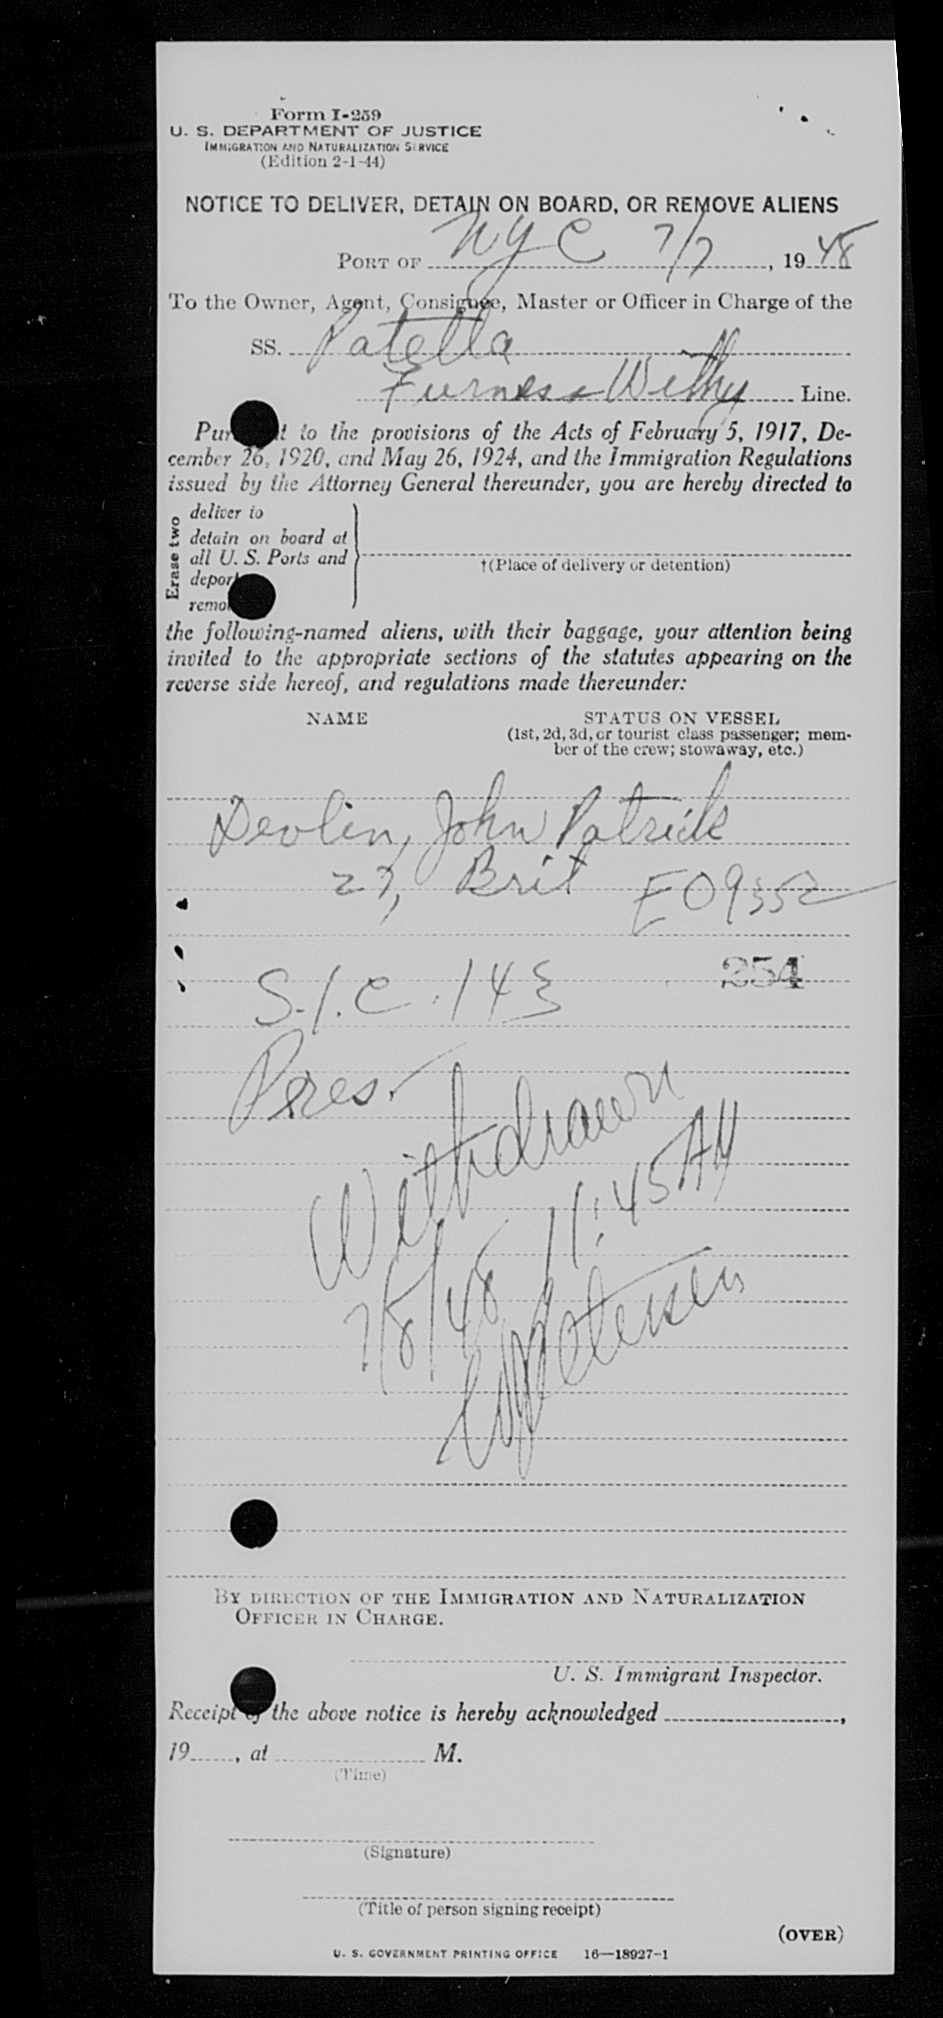 Form I-259
U. S. DEPARTMENT OF JUSTICE
IMMIGRATION AND NATURALIZATION SERVICE
(Edition 2-1-44)
NOTICE TO DELIVER, DETAIN ON BOARD, OR REMOVE ALIENS
PORT OF NYC 7/7, 1948
To the Owner, Agent, Consignee, Master or Officer in Charge of the
SS. Patella
Furness Withy Line.
Pur t to the provisions of the Acts of February 5, 1917, De-
cember 26, 1920, and May 26, 1924, and the Immigration Regulations
issued by the Attorney General thereunder, you are hereby directed to
Erase two
deliver to
detain on board at
all U. S. Ports and
depor
remo
†(Place of delivery or detention)
the following-named aliens, with their baggage, your attention being
invited to the appropriate sections of the statutes appearing on the
reverse side hereof, and regulations made thereunder:
NAME STATUS ON VESSEL
(1st, 2d, 3d, or tourist class passenger; mem-
ber of the crew; stowaway, etc.)
Devlin, John Patrick
27, Brit E09352
254
S.I.C. 143
Peres.
Withdrawn
7/8/48 11:45 AM
Petersen
BY DIRECTION OF THE IMMIGRATION AND NATURALIZATION
OFFICER IN CHARGE.
U. S. Immigrant Inspector.
Receipt of the above notice is hereby acknowledged ,
19 , at M.
(Time)
(Signature)
(Title of person signing receipt)
(OVER)
U. S. GOVERNMENT PRINTING OFFICE 16—18927-1